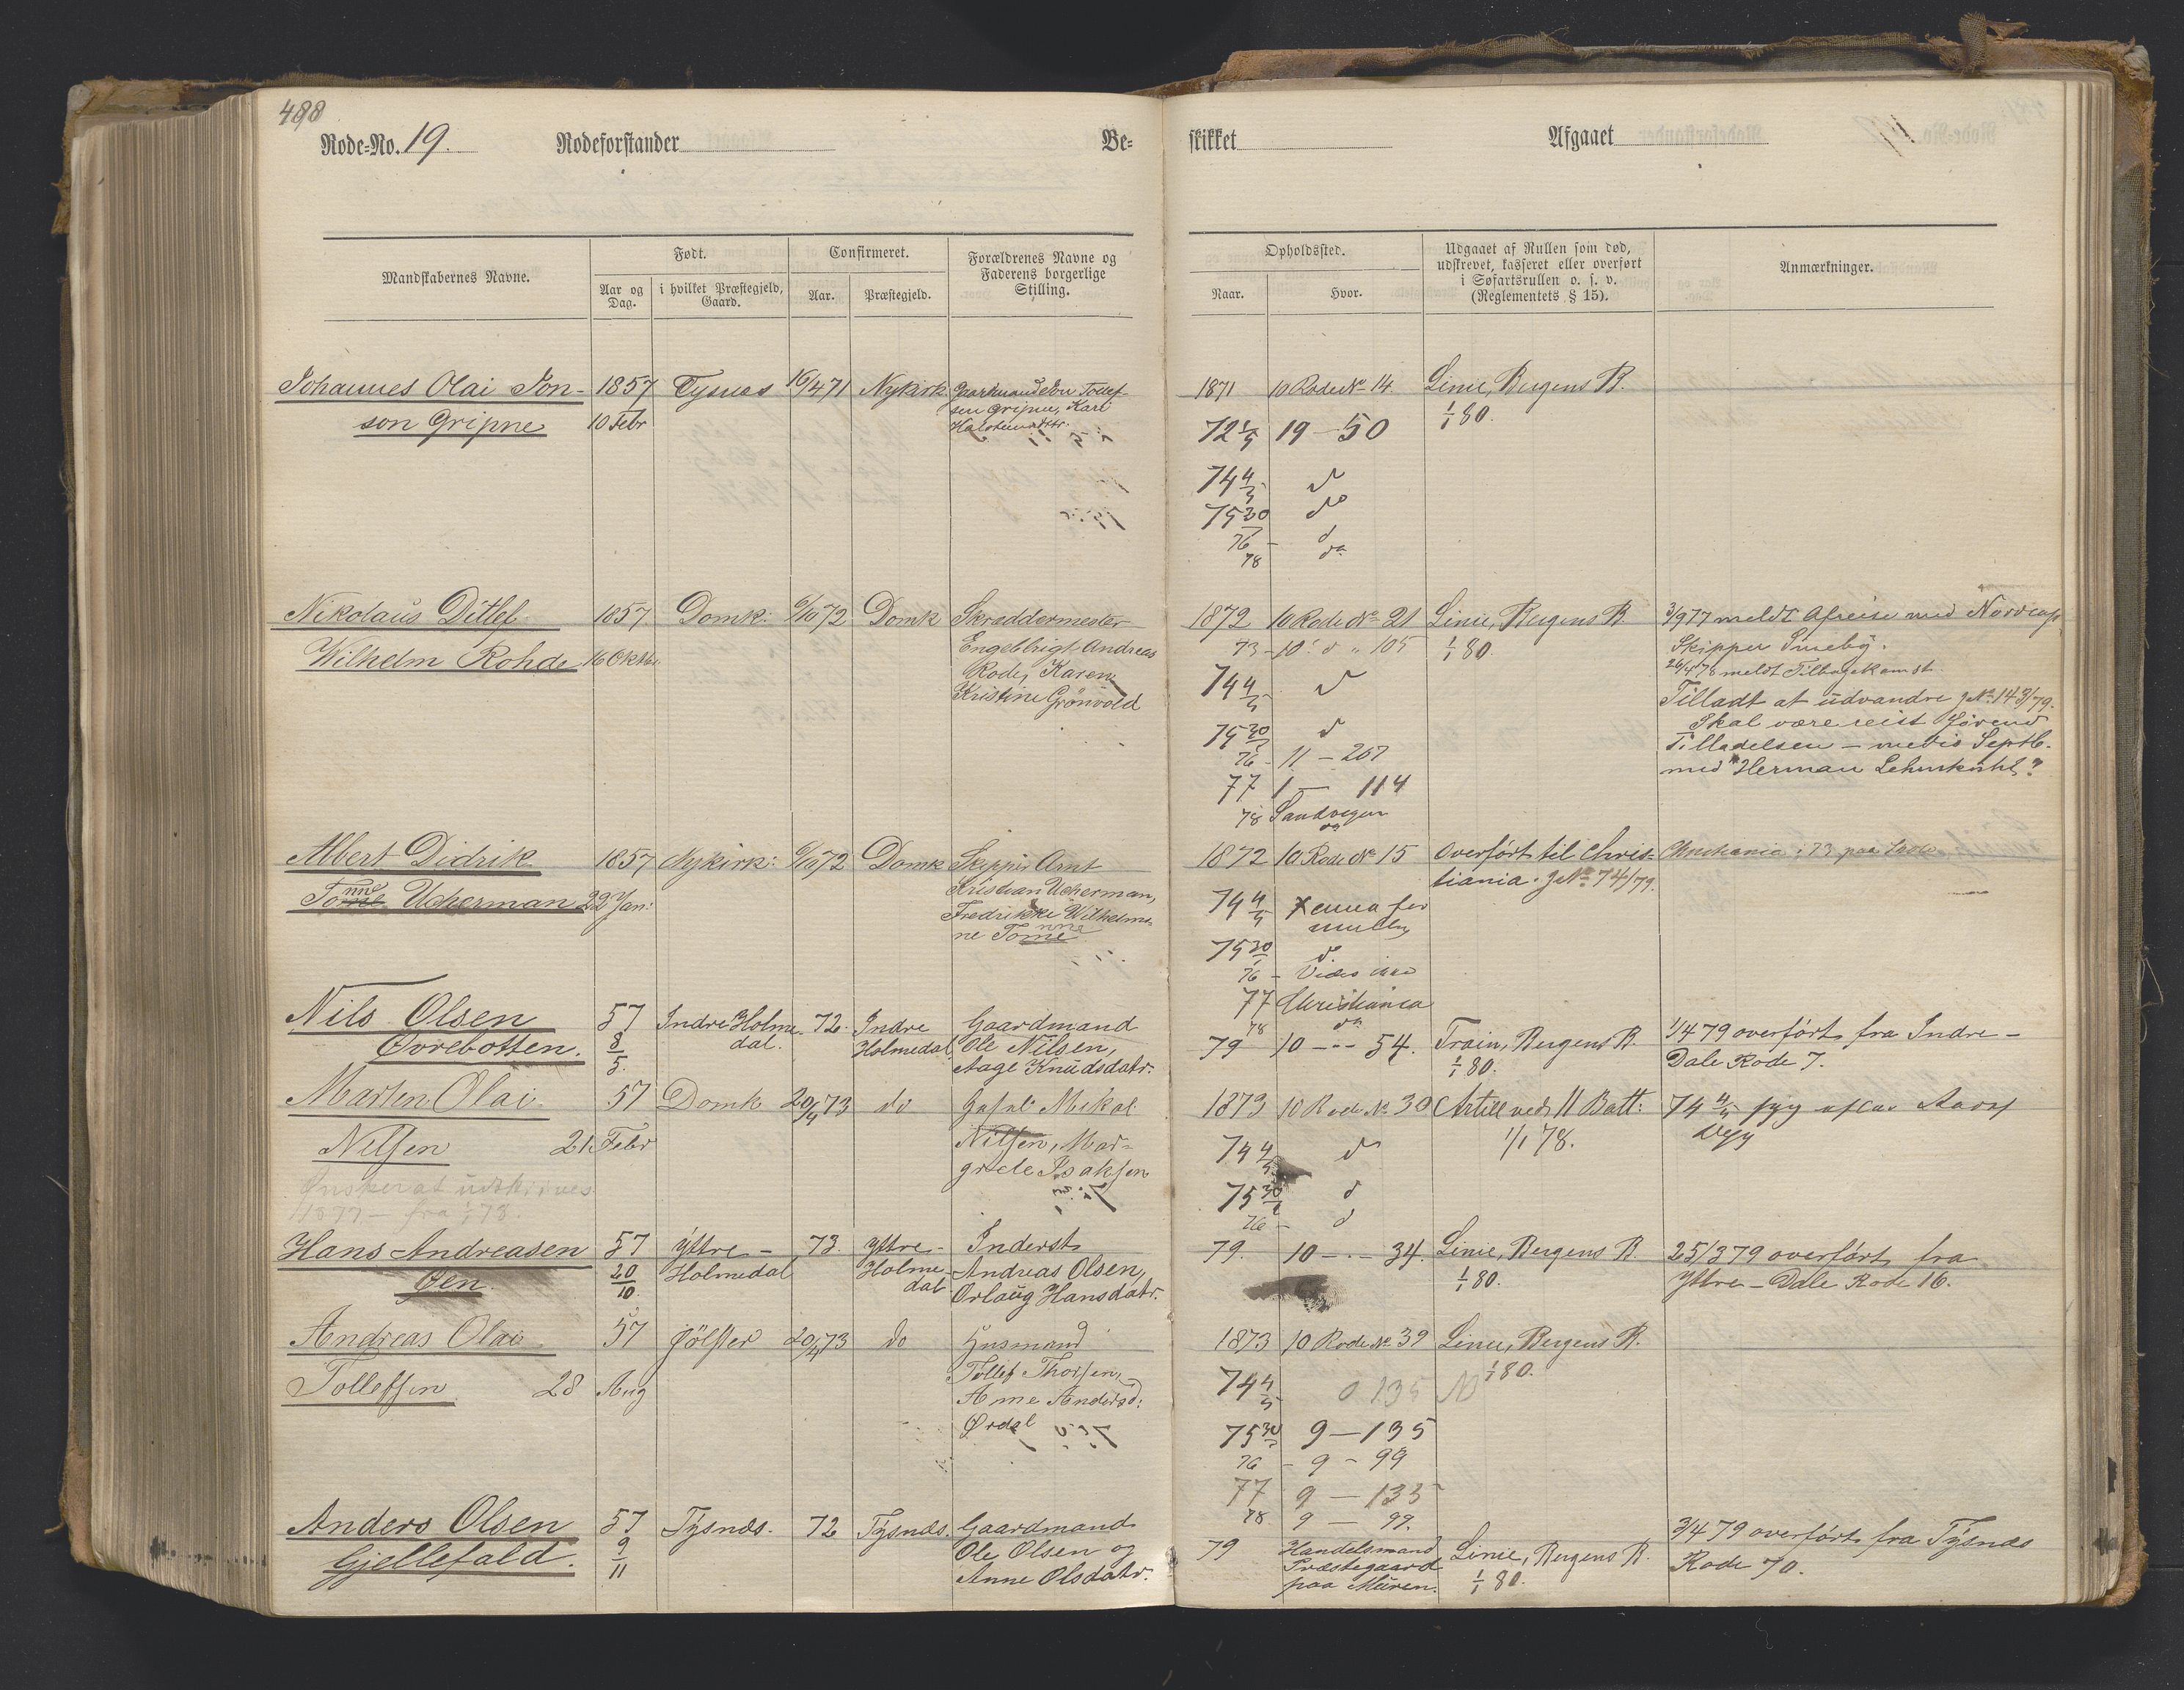 488
Rode-No. 19. Rodeforstander Be-
skikket Afgaaet
Mandskabernes Navne.
Født.
Aar og Dag.
i hvilket Præstegjeld, Gaard.
Confirmeret.
Aar.
Præstegjeld.
Forældrenes Navne og
Faderens borgerlige
Stilling.
Opholdssted.
Naar.
Hvor.
Udgaaet af Rullen som død,
udskrevet, kasseret eller overført
i Søfartsrullen o. s. v.
(Reglementets § 15).
Anmærkninger.
Johannes Olai Jon- 1857 Tysnes 16/4 71 Nykirk. Gaardmand Jon Tollef-
son Gripne 10 Febr sen Gripne, Kari
1871 10 Rode No 14. Linie, Bergens B.
1/1 80.
72 1/5 19 — 50
74 4/5 d
75 20/ do
76 - d
78 do
Nikolaus Ditlef 1857 Domk: 6/10 72 Domk Skræddermester
Wilhelm Rohde 16 Oktbr. Engelbrigt Andreas
Rode, Karen
Kristine Grönvold
1872 10 Rode No 21 Linie, Bergens B.
73 - 10 d " 105 1/1 80.
74 4/5 d
75 30/ d
76 - 11 — 267
77 1 — 114
78 Sandvigen
3/9 77 meldt Afreise med Nordcap
Skipper
26/4 78 meldt Tilbagekomst.
Tilladt at udvandre J No 143/79.
Skal være reist förend
Tilladelsen — medio Septb.
med "Herman Lehmkuhl"?
Albert Didrik 1857 Nykirk: 6/10 72 Domk Skipper Arnt
Tonne Ucherman 22 Jan: Kristian Ucherman,
Fredrikke Wilhelmi-
ne Tonne
1872 10 Rode No 15 Overført til Chris-
tiania. J No 74/79.
Christiania i 73 paa
74 4/5
75 30/ d.
76 - Vides ikke
77 Christiania
78 do
Nils Olsen 57 Indre Holme- 72. Indre Gaardmand
Øvrebotten. 8/5. dal. Holmedal Ole Nilsen,
Aage Knudsdatr.
79 10 --- 54. Train, Bergens B.
1/1 80.
1/4 79 overført fra Indre -
Dale Rode 7.
Marten Olai 57 Domk 20/4 73 do Mikal
Nilsen 21 Febr Nilsen, Mar-
grete Isaksen
Ønsker at udskrives
1873 10 Rode No 30 Artill ved 11 Batt:
1/1 78.
74 4/5 d
75 30/ d
76 - d
Hans Andreasen 57 Yttre - 73. Yttre- Inderst
Øen. 20/10. Holmedal Holme- Andreas Olsen,
dal Orlaug Hansdatr.
79. 10 --- 34. Linie, Bergens B.
1/1 80.
25/3 79 overført fra
Yttre - Dale Rode 16.
Andreas Olai 57 Jölster 20/4 73 do Husmand
Tollefsen 28 Aug Tollef Thorsen,
Anne Andersd:
Ørdal
1873 10 Rode No 39 Linie, Bergens B.
1/1 80.
74 4/5 135
75 30/ 9 — 135
76 - 9 - 99
77 9 — 135
78 9 — 99.
Anders Olsen 57 Tysnæs. 72 Tysnæs. Gaardmand
Gjellefald. 9/11 Ole Olsen og
Anne Olsdatr.
79 Handelsmand
Præstegaard
paa Muren.
Linie, Bergens B.
1/1 80.
3/4 79 overført fra Tysnæs
Rode 70.